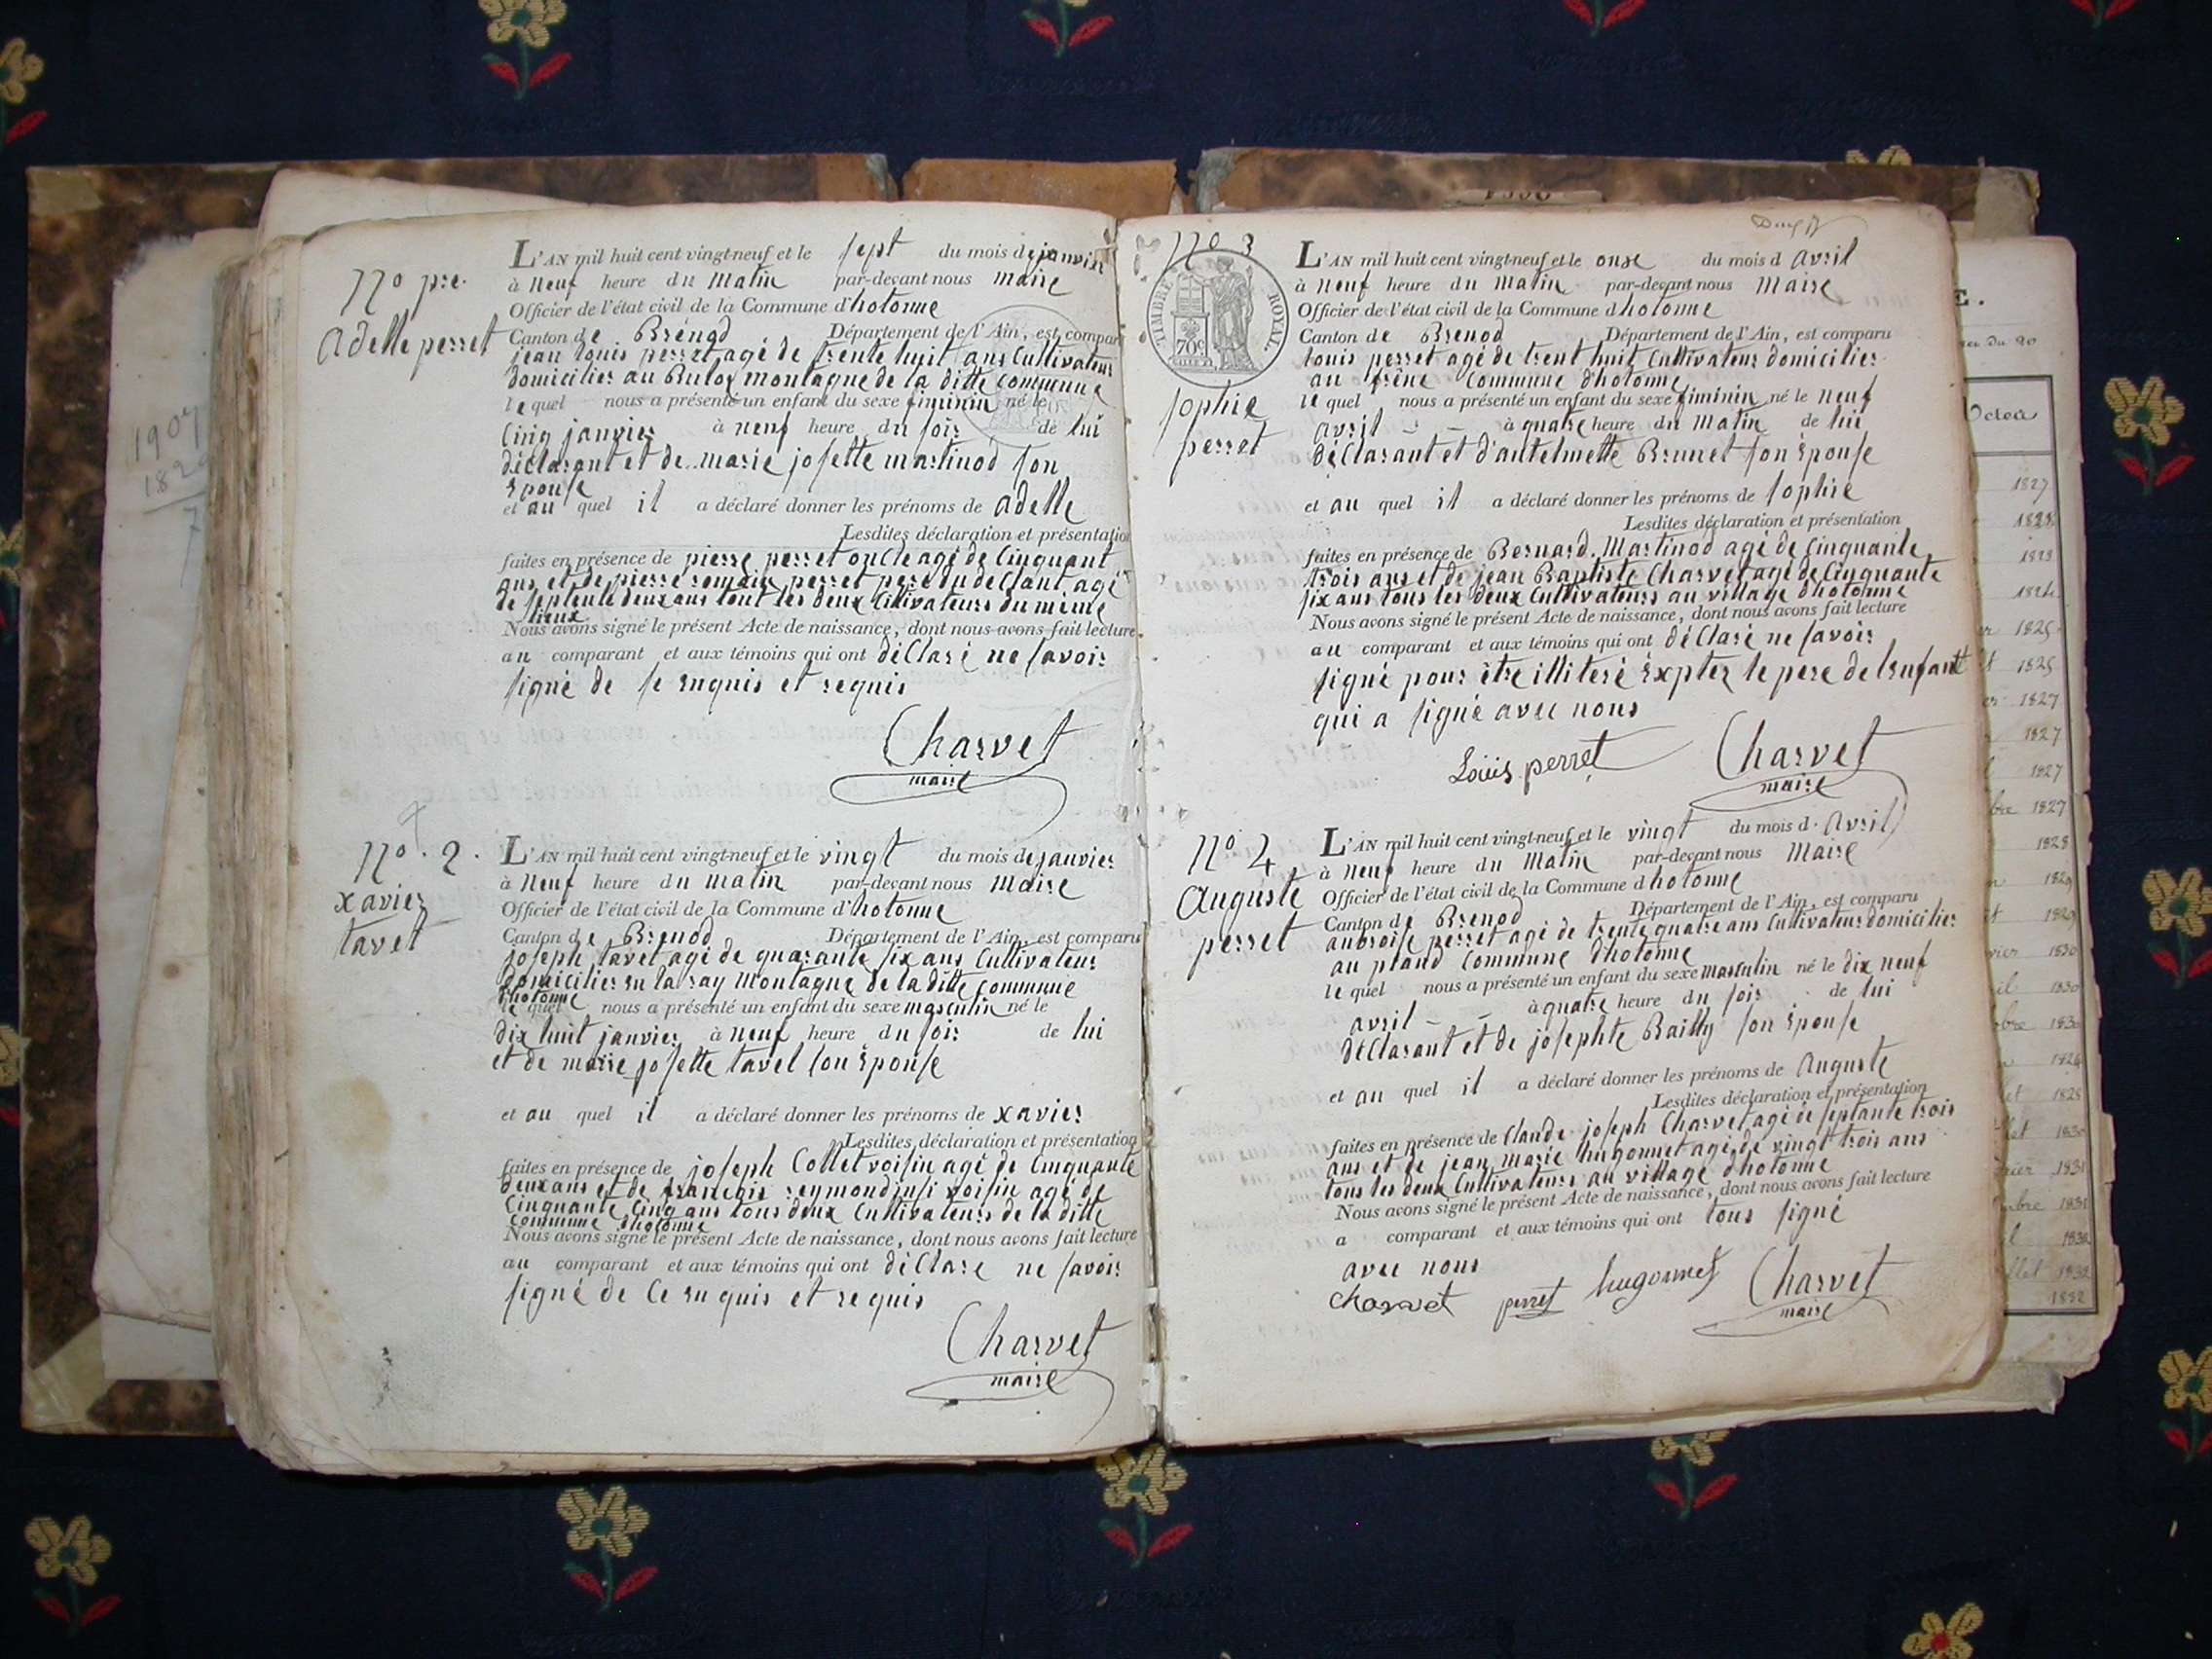 1907
182
7
No pre.
Adelle perret
L'AN mil huit cent vingt-neuf et le sept du mois de janvier
à neuf heure du matin par-devant nous maire
Officier de l'état civil de la Commune d'hotonne
Canton de Brénod Département de l'Ain, est comparu
jean louis perret agé de trente huit ans Cultivateur
domicilier au Bulox montagne de la ditte commune
le quel nous a présenté un enfant du sexe fiminin né le
cinq janvier à neuf heure du soir de lui
déclarant et de marie josette martinod son
épouse
et au quel il a déclaré donner les prénoms de adelle
Lesdites déclaration et présentation
faites en présence de pierre perret oncle agé de Cinquant
ans et de pierre romain perret pere du déclant agé
de septente deux ans tout les deux Cultivateurs du même
lieux
Nous avons signé le présent Acte de naissance, dont nous avons fait lecture
au comparant et aux témoins qui ont déClaré ne savoir
signé de se enquis et requis
Charvet
maire
No. 2.
xavier
tavet
L'AN mil huit cent vingt-neuf et le vingt du mois de janvier
à neuf heure du matin par-devant nous maire
Officier de l'état civil de la Commune d'hotonne
Canton de Brenod Département de l'Ain, est comparu
joseph tavet agé de quarante six ans Cultivateur
domicilier en la ray Montagne de la ditte commune
d'hotonne
le quel nous a présenté un enfant du sexe masculin né le
dix huit janvier à neuf heure du soir de lui
et de marie josette tavel son épouse
et au quel il a déclaré donner les prénoms de xavier
Lesdites déclaration et présentation
faites en présence de joseph Collet voisin agé de Cinquante
deux ans et de francois reymond voisin agé de
Cinquante Cinq ans tous deux Cultivateurs de la ditte
commune d'hotonne
Nous avons signé le présent Acte de naissance, dont nous avons fait lecture
au comparant et aux témoins qui ont déClaré ne savoir
signé de Ce en quis et requis
Charvet
maire
No 3
TIMBRE ROYAL.
70c
sophie
perret
L'AN mil huit cent vingt-neuf et le onse du mois d avril
à neuf heure du matin par-devant nous Maire
Officier de l'état civil de la Commune d hotonne
Canton de Brenod Département de l'Ain, est comparu
louis perret agé de trent huit Cultivateur domicilier
au frêne Commune d'hotonne
le quel nous a présenté un enfant du sexe fiminin né le neuf
avril - - à quatre heure du matin de lui
déClarant et d'antelmette Brunet son épouse
et au quel il a déclaré donner les prénoms de sophie
Lesdites déclaration et présentation
faites en présence de Bernard Martinod agé de Cinquante
trois ans et de jean Baptiste Charvet agé de Cinquante
six ans tous les deux Cultivateurs au village d'hotonne
Nous avons signé le présent Acte de naissance, dont nous avons fait lecture
au comparant et aux témoins qui ont déClaré ne savoir
signé pour être illiteré éxpter le pere de l'enfant
qui a signé avec nous
Louis perret Charvet
maire
No 4
Auguste
perret
L'AN mil huit cent vingt-neuf et le vingt du mois d. avril
à neuf heure du matin par-devant nous Maire
Officier de l'état civil de la Commune d hotonne
Canton de Brenod Département de l'Ain, est comparu
anbroise perret agé de trente quatre ans Cultivateur domicilier
au pland Commune d'hotonne
le quel nous a présenté un enfant du sexe masculin né le dix neuf
avril - - à quatre heure du soir de lui
déClarant et de josephte Bailly son épouse
et au quel il a déclaré donner les prénoms de Auguste
Lesdites déclaration et présentation
faites en présence de Claude joseph Charvet agé de septante trois
ans et de jean marie hugonnet agé de vingt trois ans
tous les deux Cultivateurs au village d'hotonne
Nous avons signé le présent Acte de naissance, dont nous avons fait lecture
a comparant et aux témoins qui ont tous signé
avec nous
Charvet perret hugonnet Charvet
maire
E.
1827
1828
1825
1825
1827
1827
1827
1827
1828
1829
1829
1830
1830
1830
1828
1830
1831
1831
1832
1832
1832